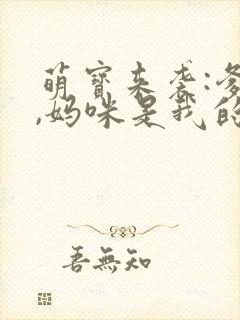 萌寶来袭:爹
,妈咪是我的
吾無知